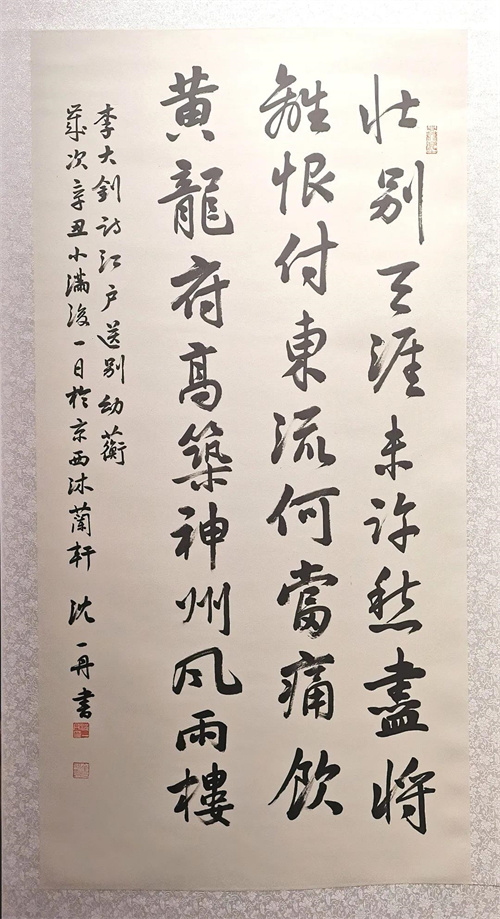 壮别天涯未许愁盡将
離恨付東流何當痛飲
黄龍府高築神州风雨樓
李大釗詩江户送别幼蘅
歲次辛丑小满後一日於京西沐蘭軒 沈一丹書